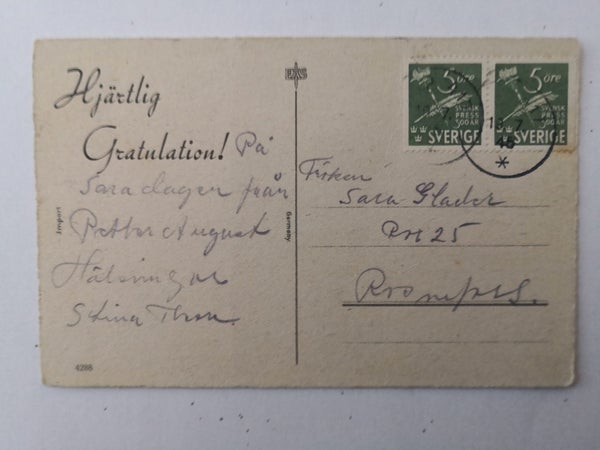 Hjärtlig
Gratulation! På
Saradagen från
Petter August
Hälsningar
Stina
Import
Germany
4286
EAS
Fröken
Sara Glader
Box 25
5 öre
SVENSK
PRESS
300 ÅR
SVERIGE
5 öre
SVENSK
PRESS
300 ÅR
SVERIGE